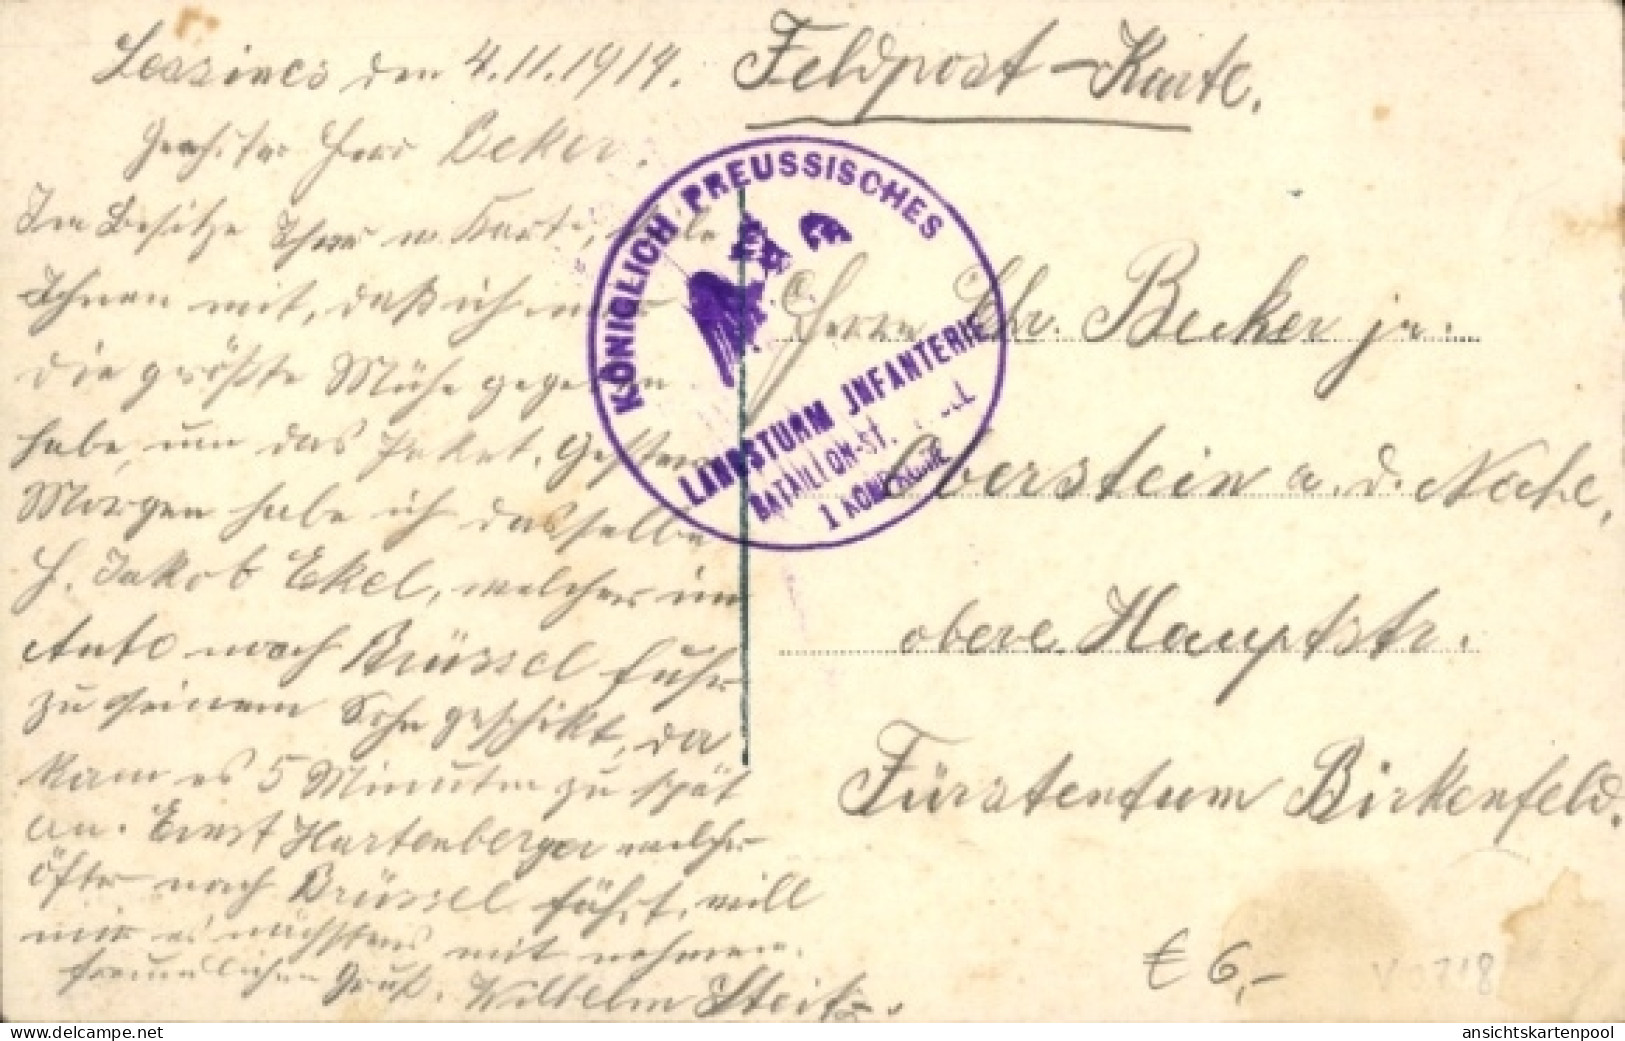 Lessines den 4.11.1914.
Feldpost-Karte.
Geehrter Herr Beker.
Im Besitze Ihrer w. Karte, teile
Ihnen mit, daß ich mir
die größte Mühe gegeben
habe, um das Paket. Gestern
Morgen habe ich dasselbe
H. Jakob Ekel, welcher im
Auto nach Brüssel fuhr
zu seinem Sohn geschikt, da
kam es 5 Minuten zu spät
an. Ernst Hartenberger welcher
öfter nach Brüssel fährt, will
mir es nächstens mit nehmen.
freundlichen Gruß. Wilhelm Steitz.
KÖNIGLICH PREUSSISCHES
LANDSTURM JNFANTERIE
BATAILLON-ST.
1 KOMPAGNIE
Herrn Chr. Becker jr.
Oberstein a. d. Nahe,
obere Hauptstr.
Fürstentum Birkenfeld.
€ 6,-
ansichtskartenpool
www.delcampe.net